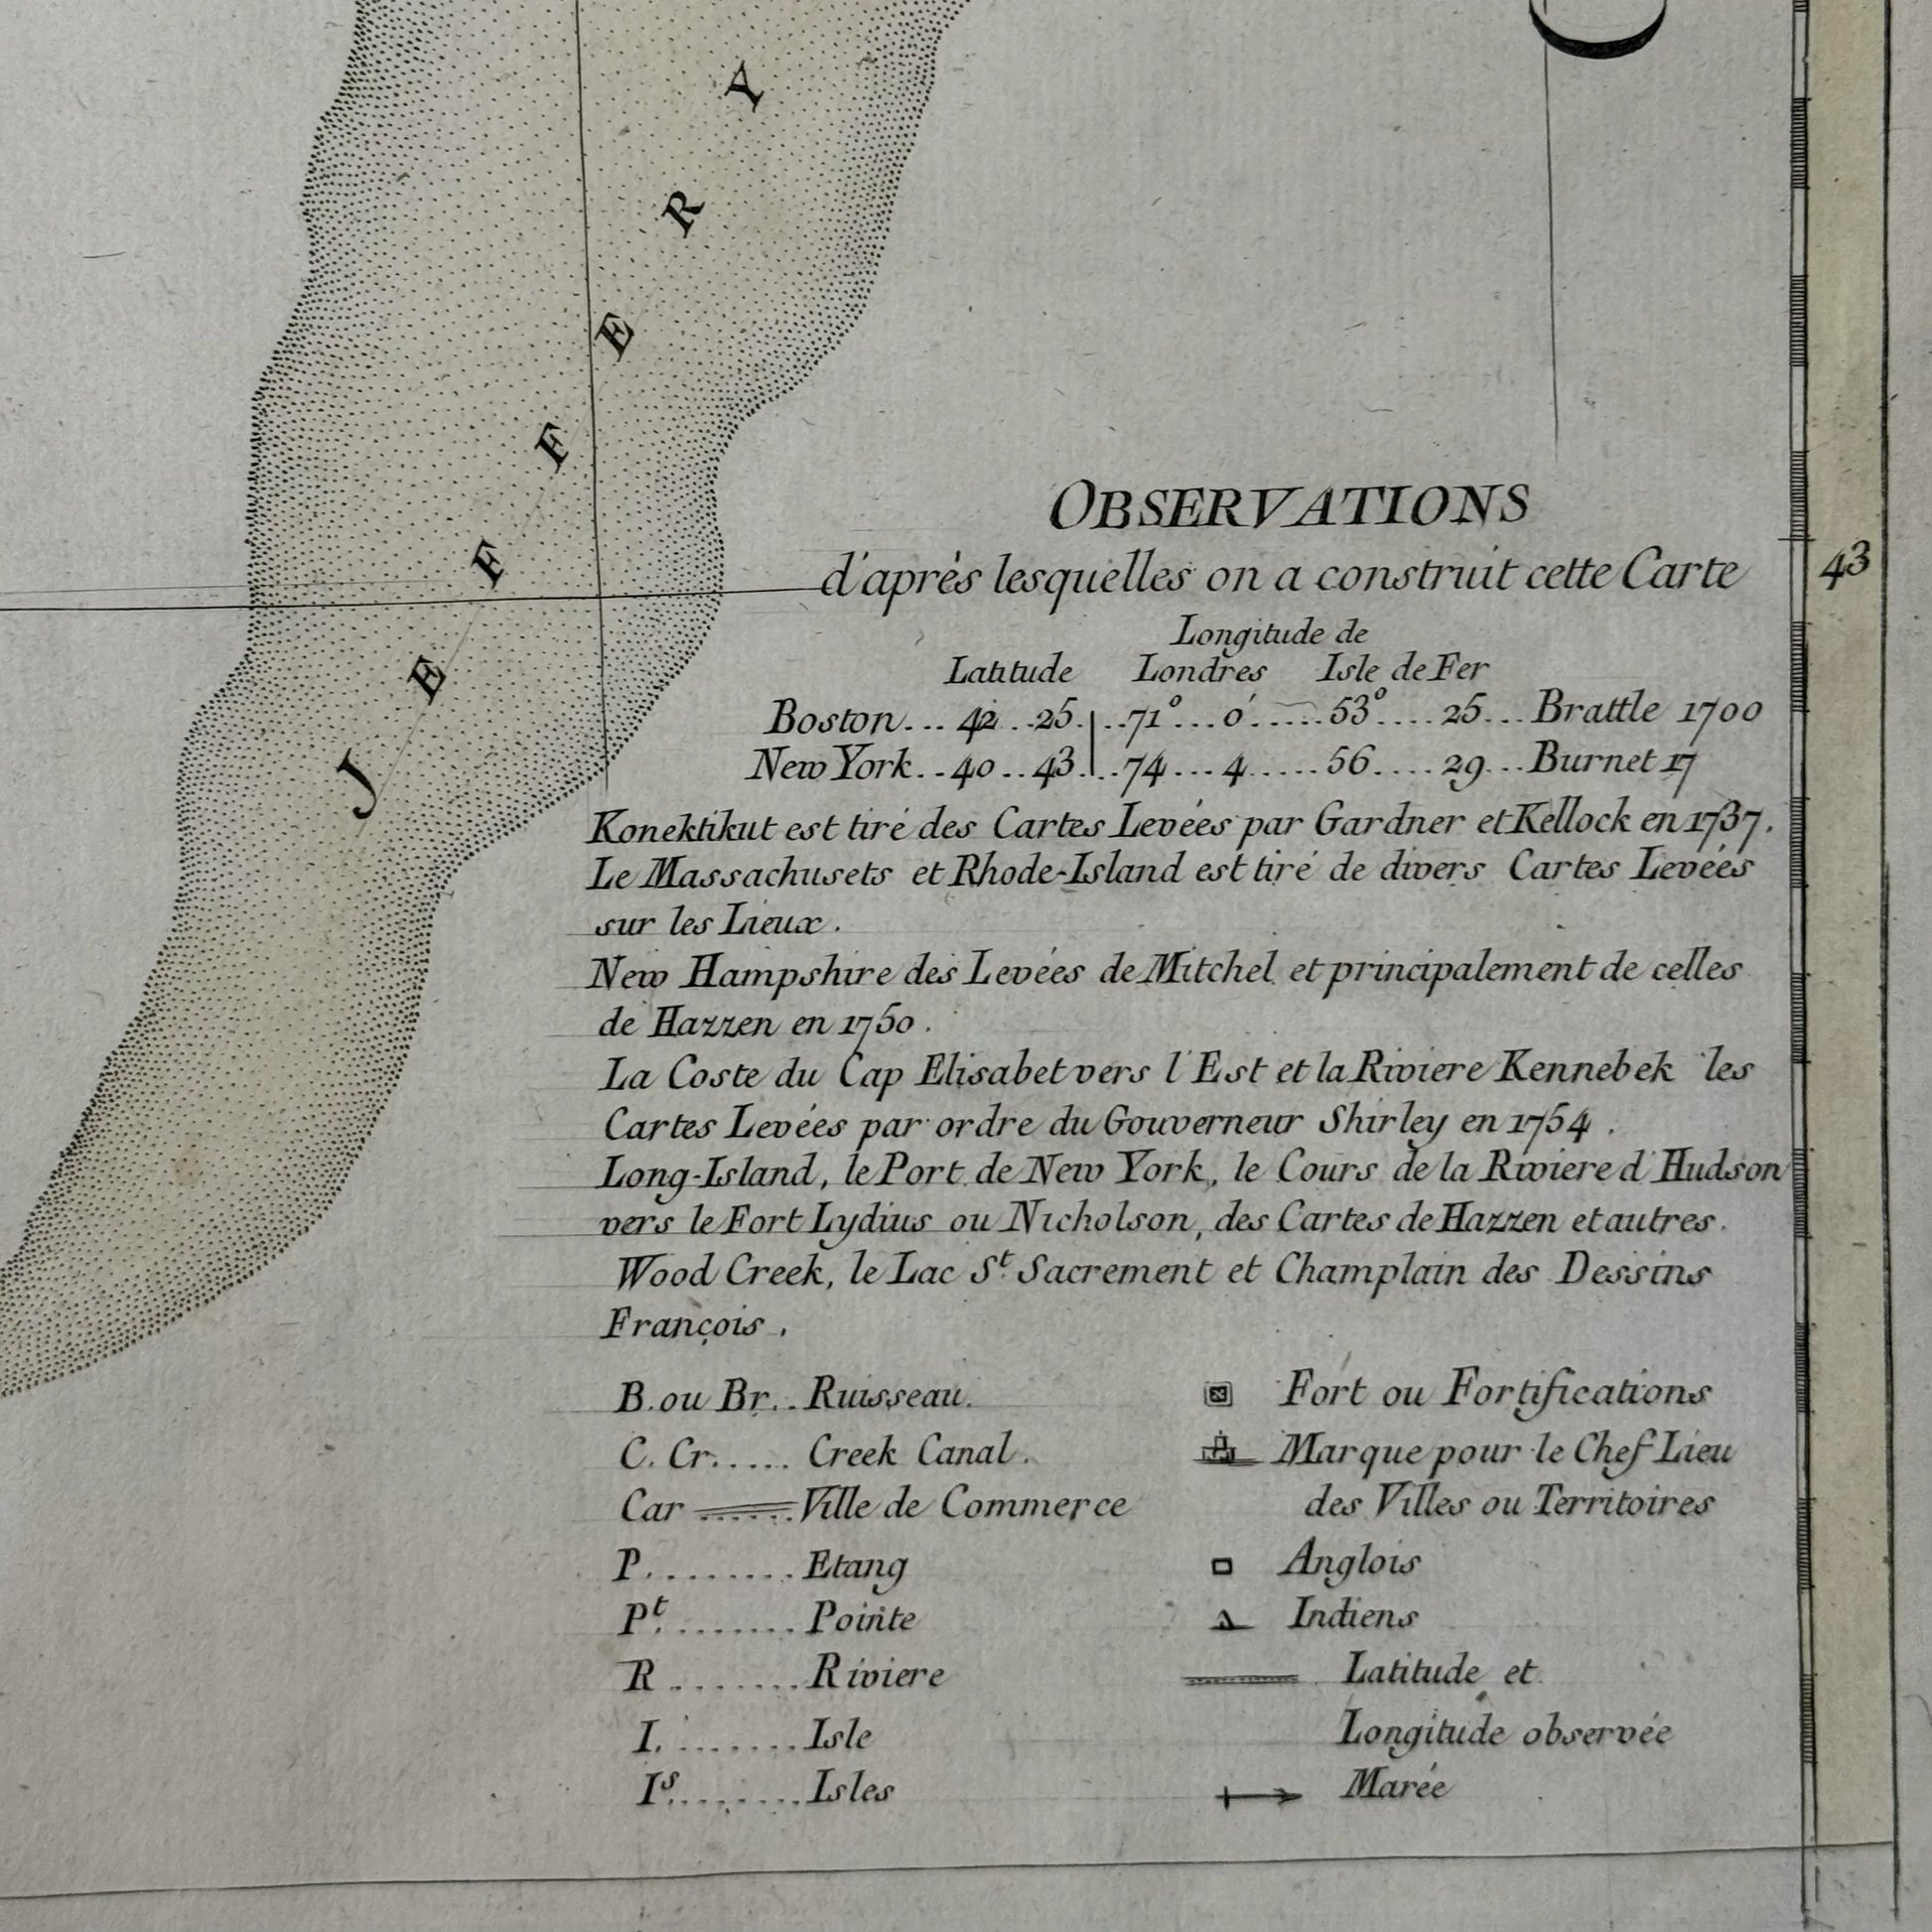 JEFFERY
OBSERVATIONS
d'après lesquelles on a construit cette Carte
43
Longitude de
Latitude Londres Isle de Fer
Boston... 42..25...71°...0'......53°....25...Brattle 1700
New York..40..43...74...4.....56....29...Burnet 17
Konektikut est tiré des Cartes Levées par Gardner et Kellock en 1737.
Le Massachusets et Rhode-Island est tiré de divers Cartes Levées
sur les Lieux.
New Hampshire des Levées de Mitchel et principalement de celles
de Hazzen en 1750.
La Coste du Cap Elisabet vers l'Est et la Riviere Kennebek les
Cartes Levées par ordre du Gouverneur Shirley en 1754.
Long-Island, le Port de New York, le Cours de la Riviere d'Hudson
vers le Fort Lydius ou Nicholson, des Cartes de Hazzen et autres.
Wood Creek, le Lac St. Sacrement et Champlain des Dessins
François.
B. ou Br..Ruisseau.
C. Cr..... Creek Canal.
Car Ville de Commerce
P.........Etang
Pt.........Pointe
R........Riviere
I.........Isle
Is.........Isles
Fort ou Fortifications
Marque pour le Chef Lieu
des Villes ou Territoires
Anglois
Indiens
Latitude et
Longitude observée
Marée